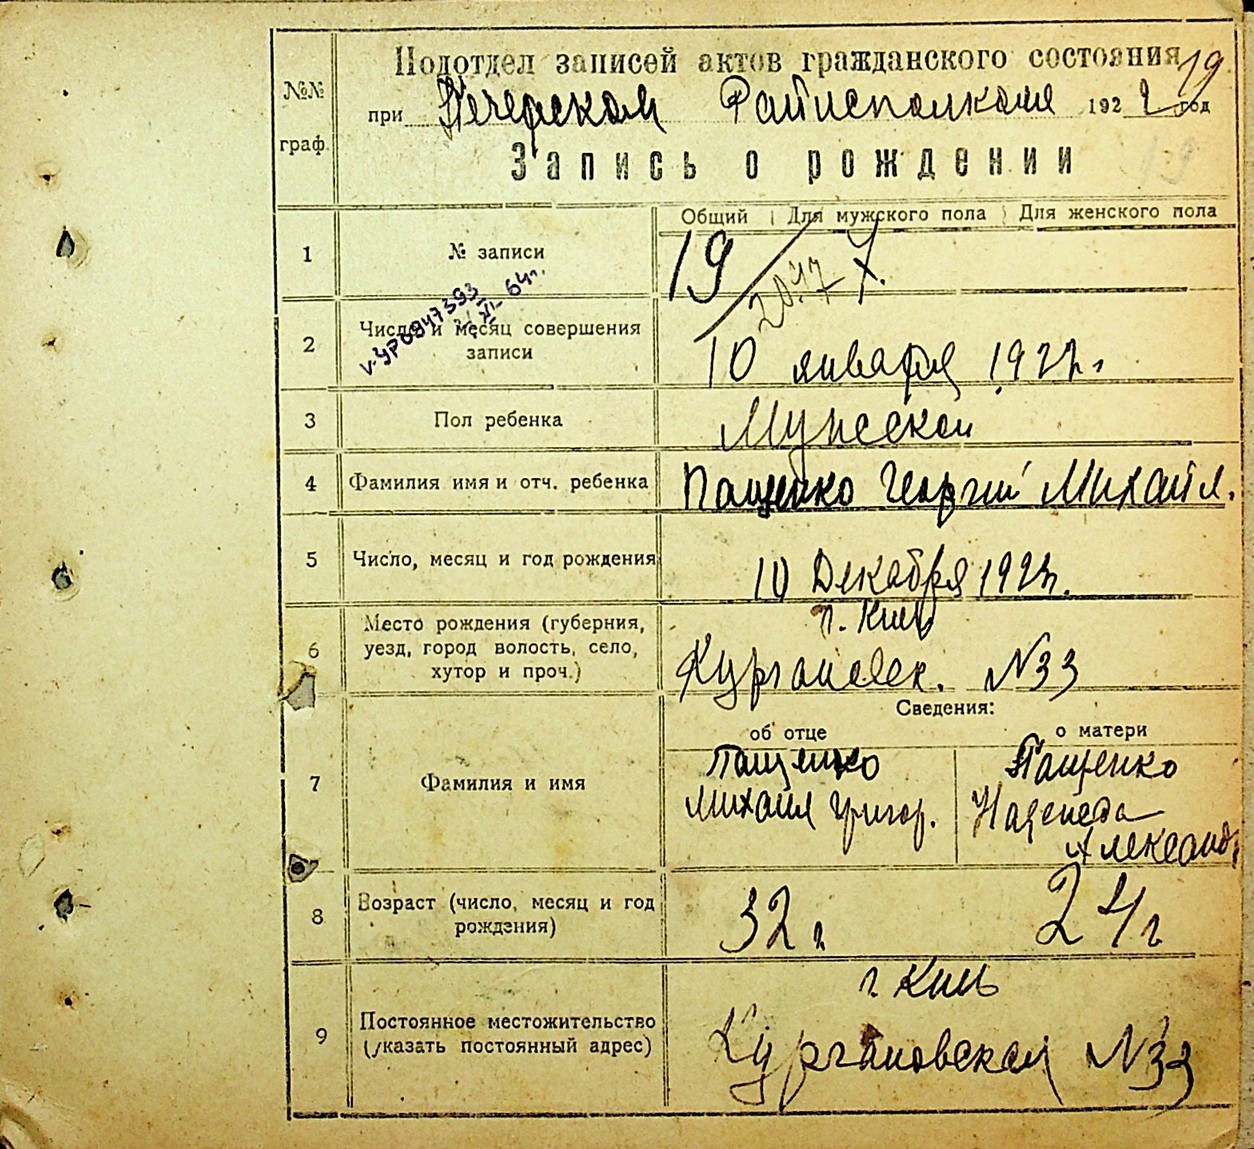 19
Подотдел записей актов гражданского состояния
№№ граф
при Печерском Райисполкоме 192 2 год
Запись о рождении
Общий Для мужского пола Для женского пола
1 № записи 19 7.
V-УР 0947393
XI 64г.
2 Число и месяц совершения записи 10 января 1922г.
3 Пол ребенка Мужской
4 Фамилия имя и отч. ребенка Пащенко Георгий Михайл.
5 Число, месяц и год рождения 10 Декабря
г. Киев
6 Место рождения (губерния, уезд, город волость, село, хутор и проч.) Кургановск. N33
Сведения:
об отце о матери
7 Фамилия и имя
Пащенко Михаил Григор.
Пащенко Надежда Александ.
8 Возраст (число, месяц и год рождения) 32 г 24 г
г Киев
9 Постоянное местожительство (указать постоянный адрес) Кургановская N33